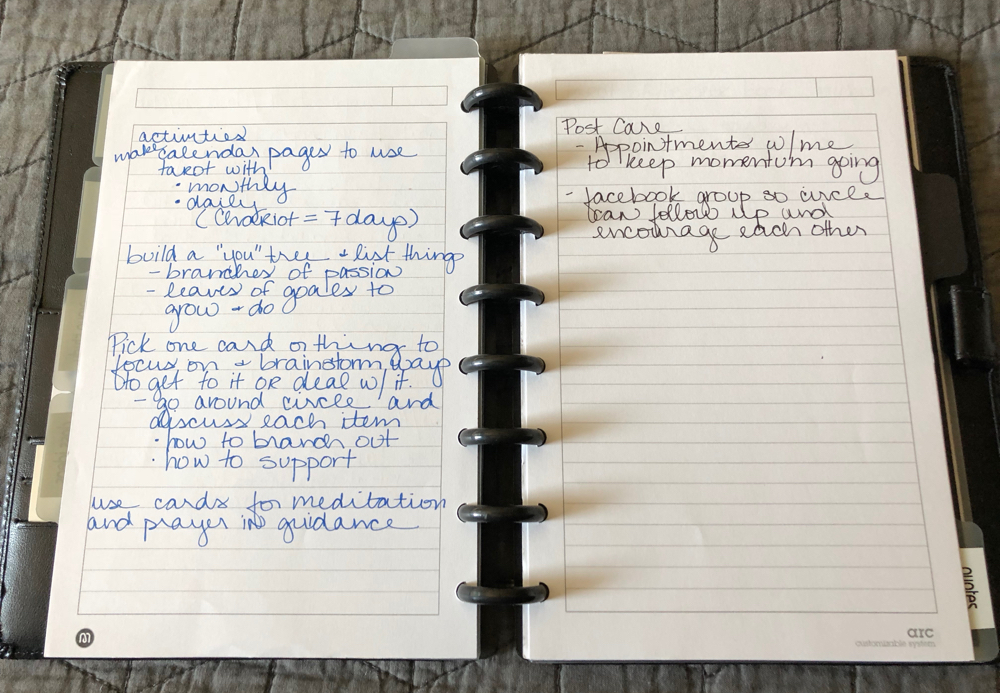 activities
make calendar pages to use
tarot with
• monthly
• daily
(Chariot = 7 days)
build a "you" tree + list thing
- branches of passion
- leaves of goals to
grow + do
Pick one card or thing to
focus on + brainstorm ways
to get to it or deal w/ it.
- go around circle and
discuss each item
• how to branch out
• how to support
use cards for meditation
and prayer in guidance
Post Care
- Appointments w/me
to keep momentum going
- facebook group so circle
can follow up and
encourage each other
quotes
arc
customizable system